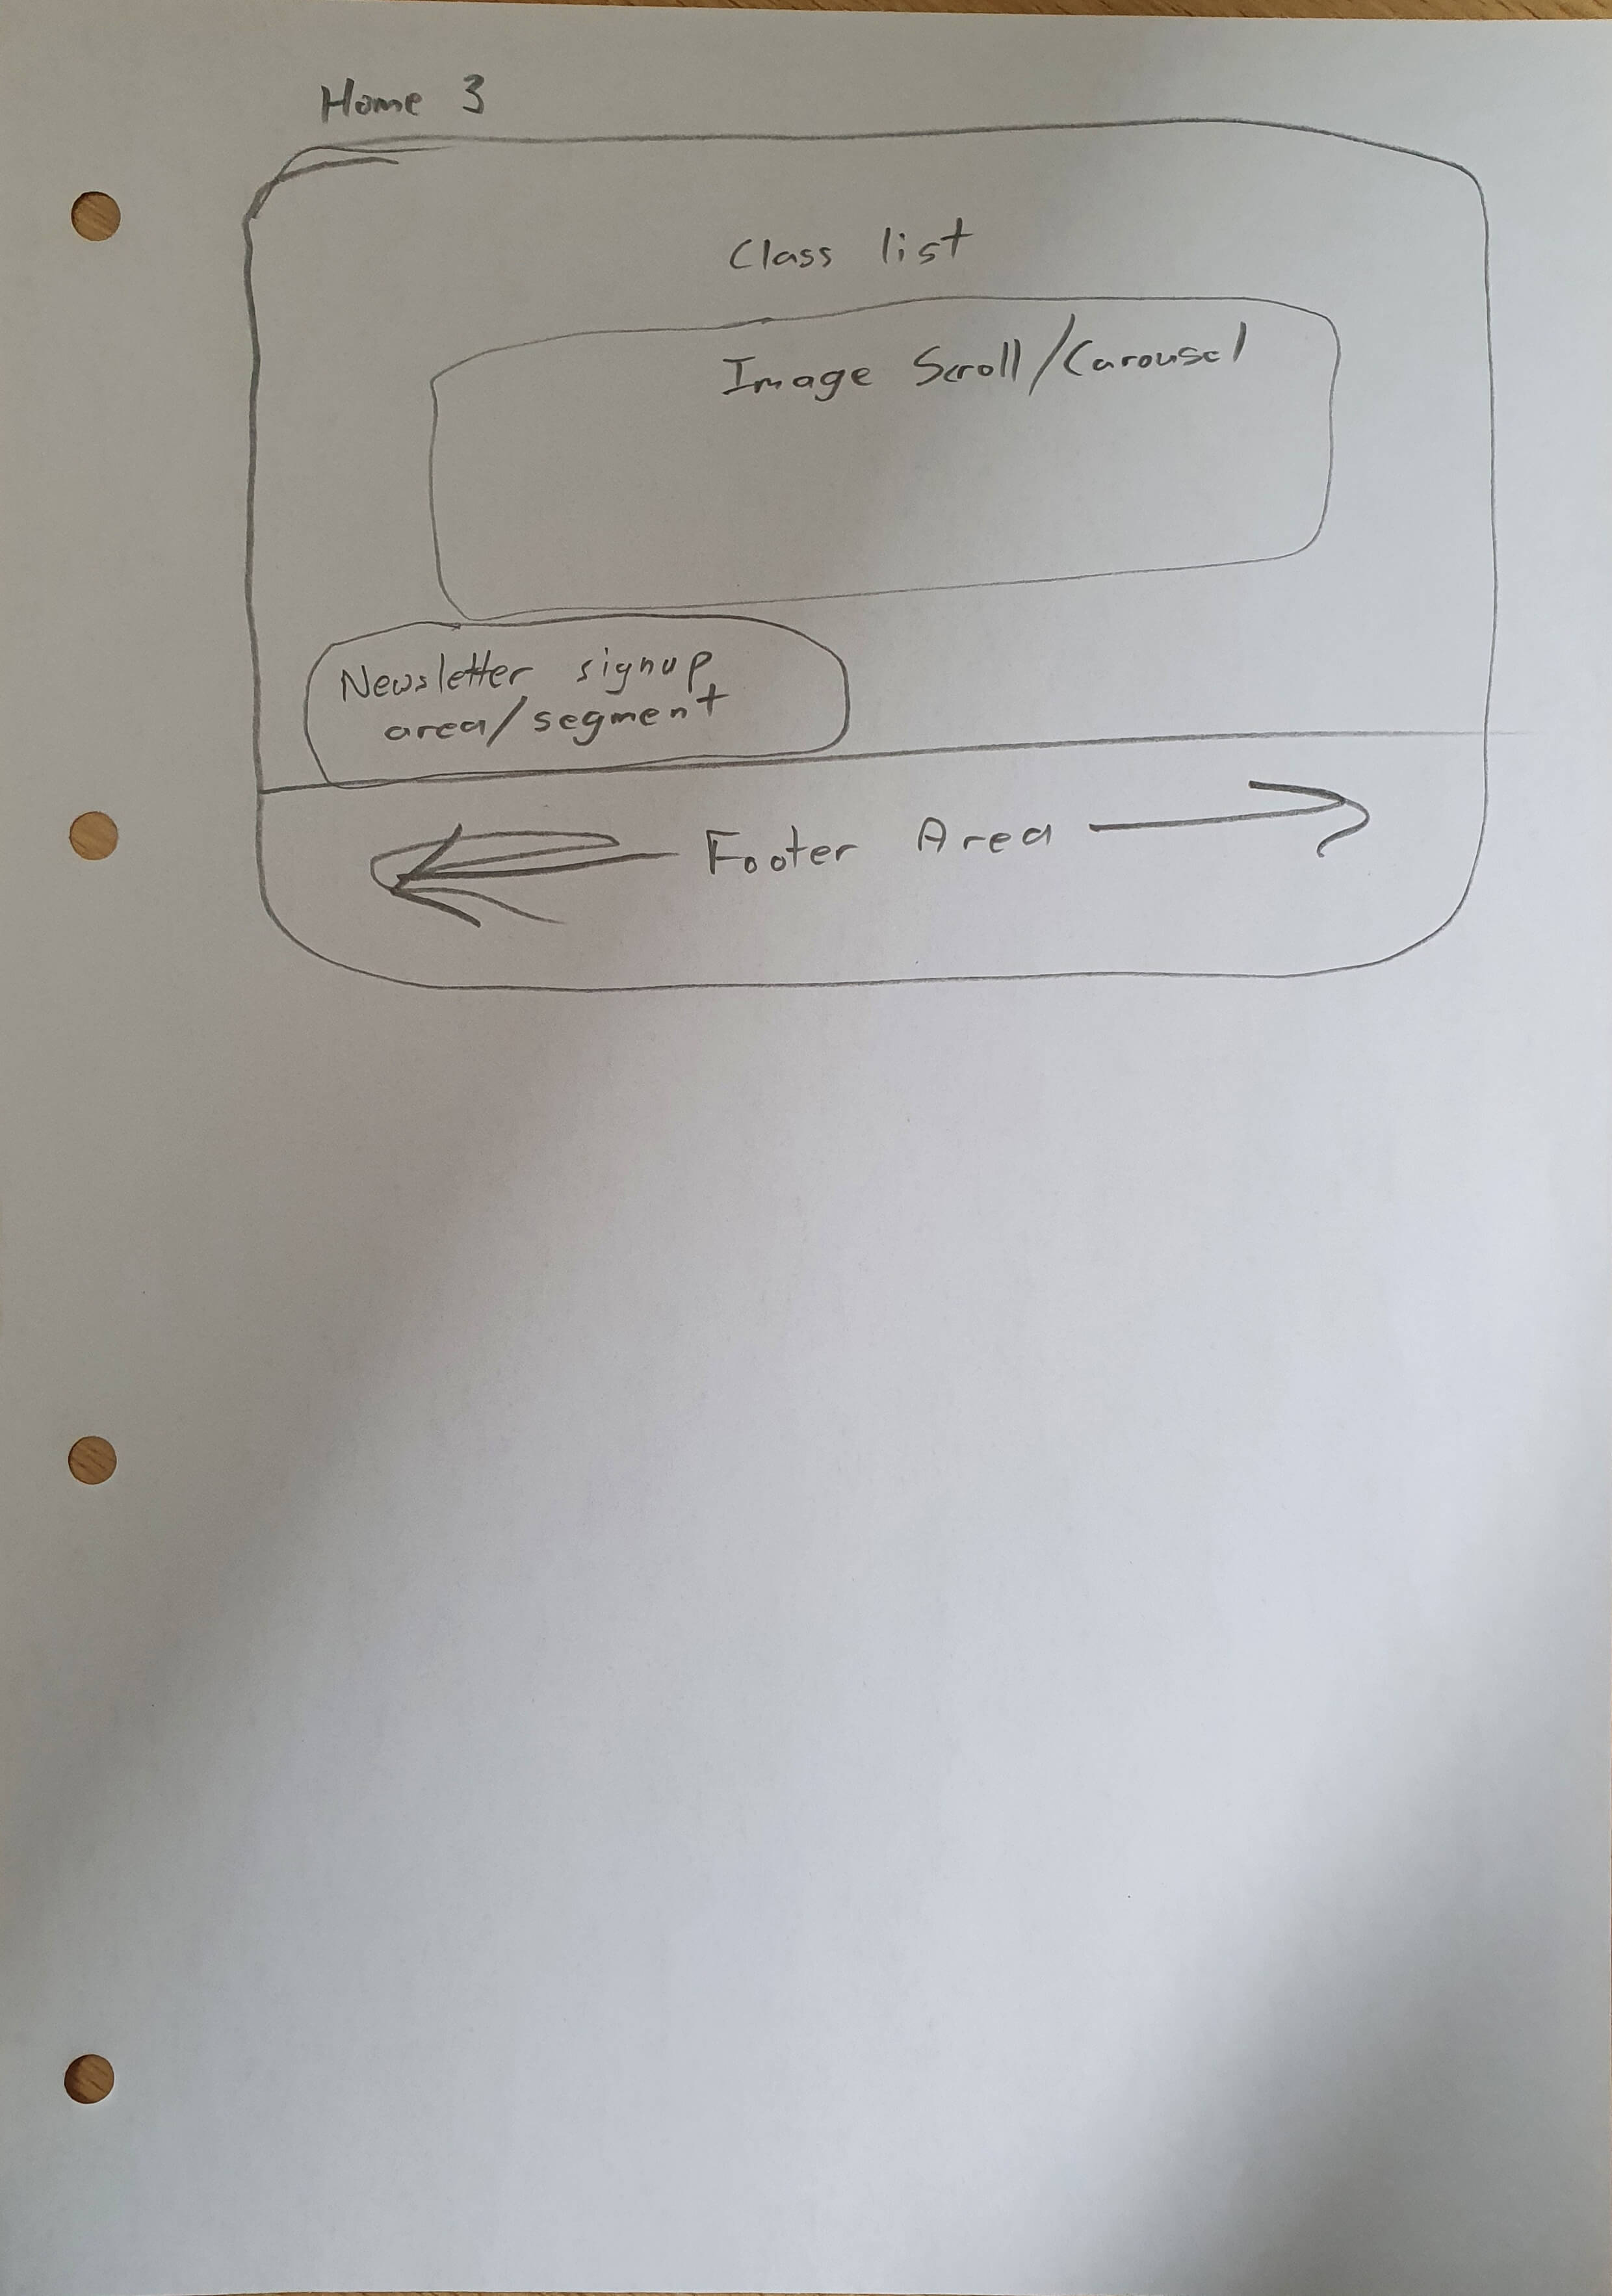 Home 3
Class list
Image Scroll/Carousel
Newsletter signup
area/segment
Footer Area